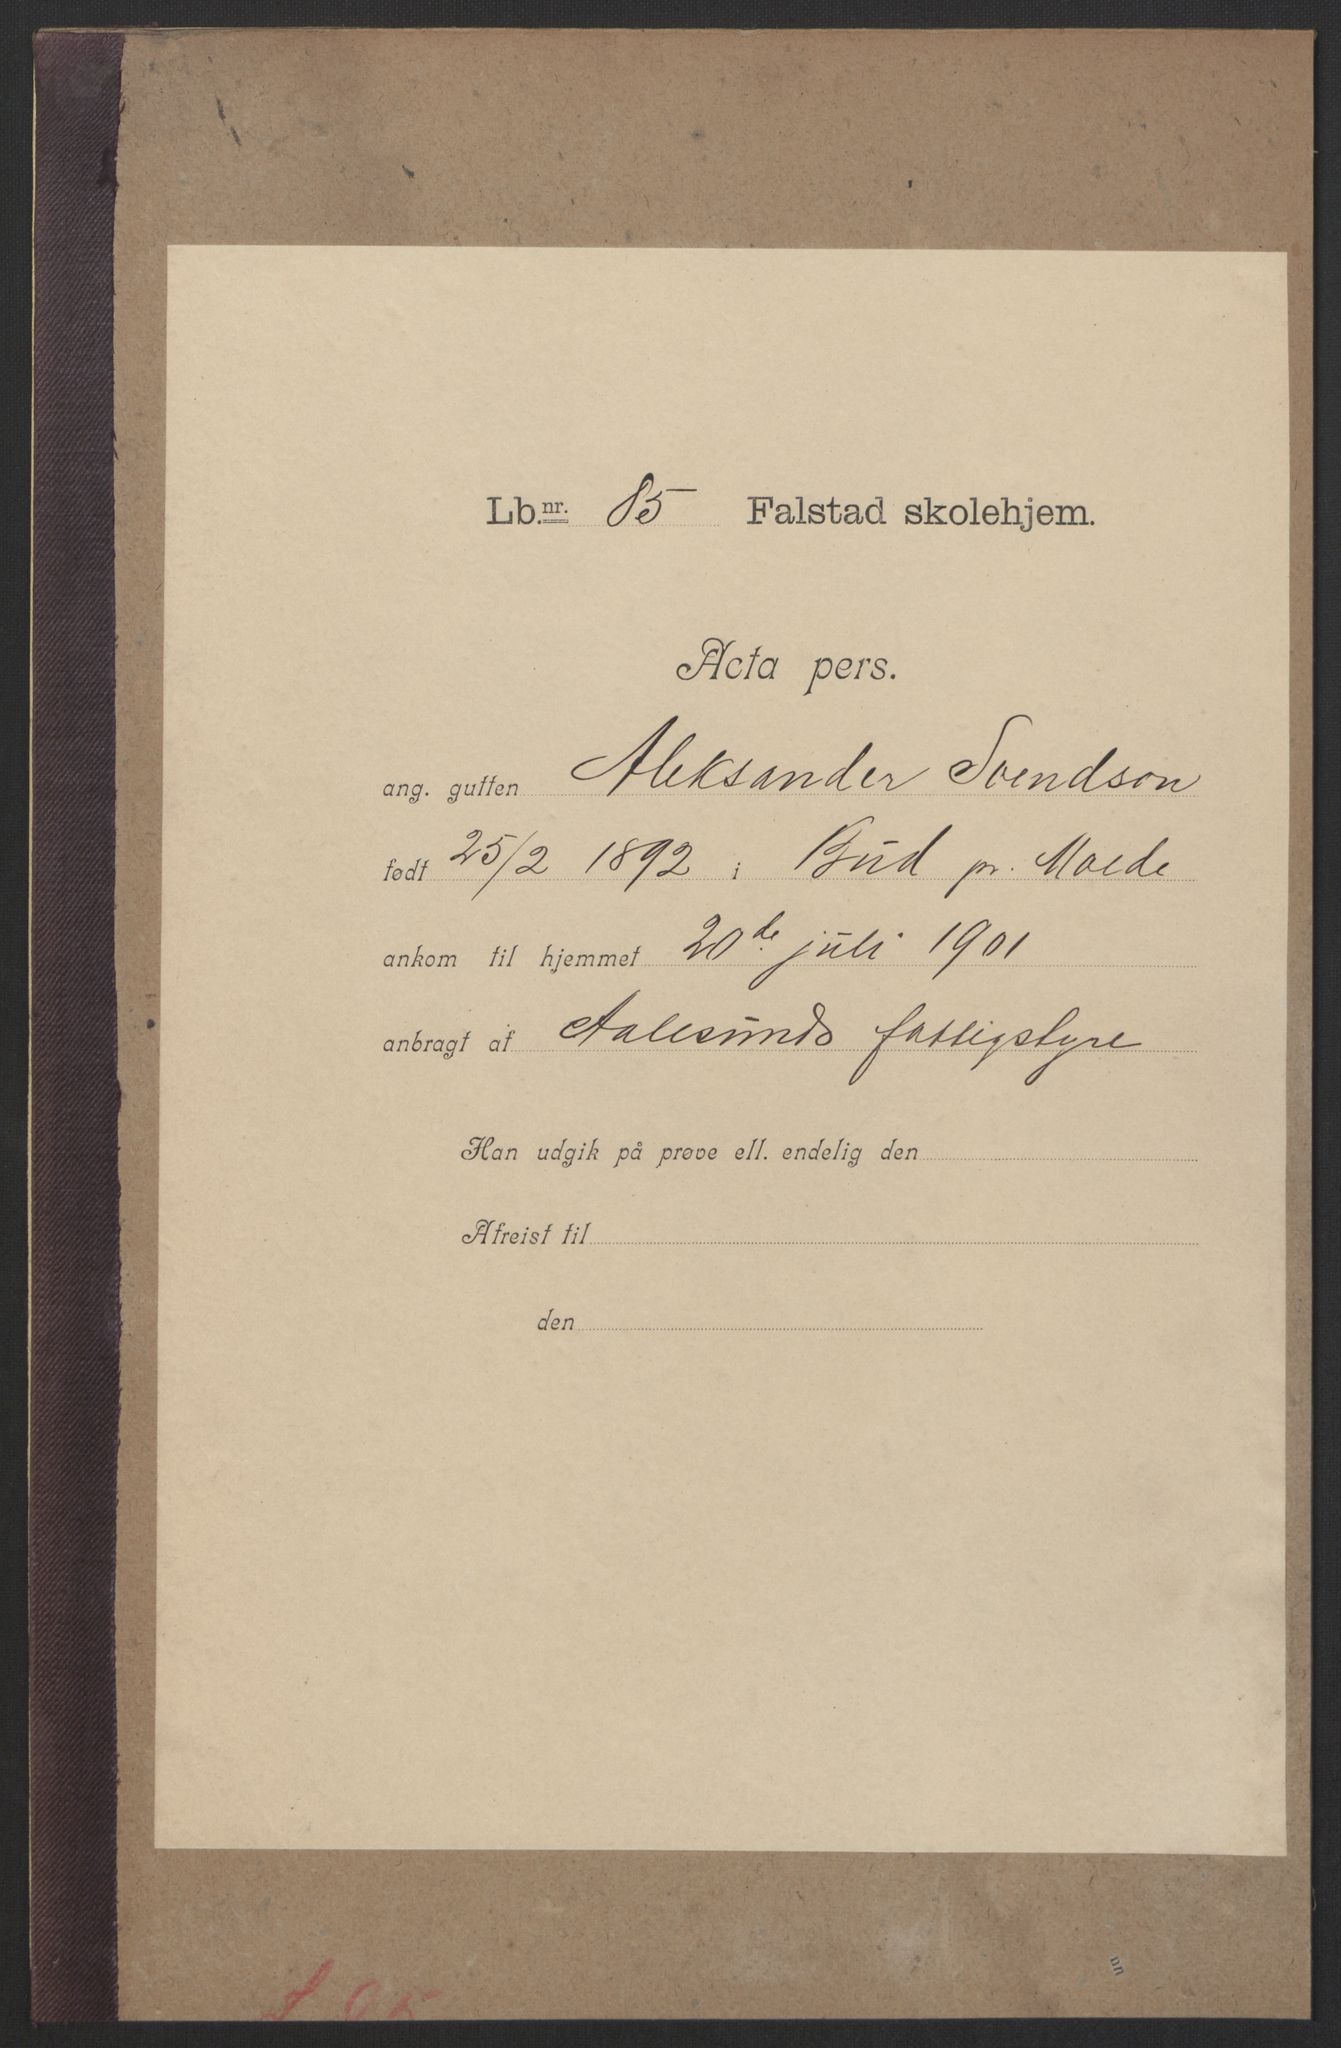 Lb.nr. 85 Falstad skolehjem.
Acta pers.
ang. gutten Aleksander Svendson
født 25/2 1892 i Bud pr. Molde
ankom til hjemmet 20de juli 1901
anbragt af Aalesunds fattigstyre
Han udgik på prøve ell. endelig den
Afreist til
den